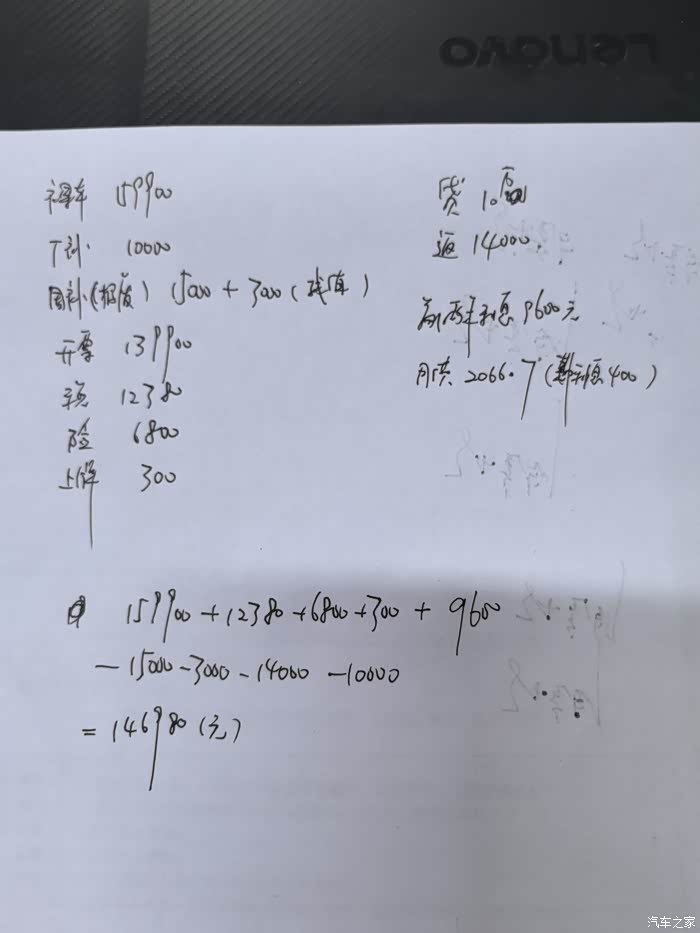 Lenovo
裸车 159900
厂补 10000
国补(报废) 15000 + 3000 (残值)
开票 139900
税 12380
险 6800
上牌 300
贷 10万
返 14000.
前两年利息 9600元
月供 2066.7 (利息400)
159900 + 12380 + 6800 + 300 + 9600
- 15000 - 3000 - 14000 - 10000
= 146980 (元)
汽车之家